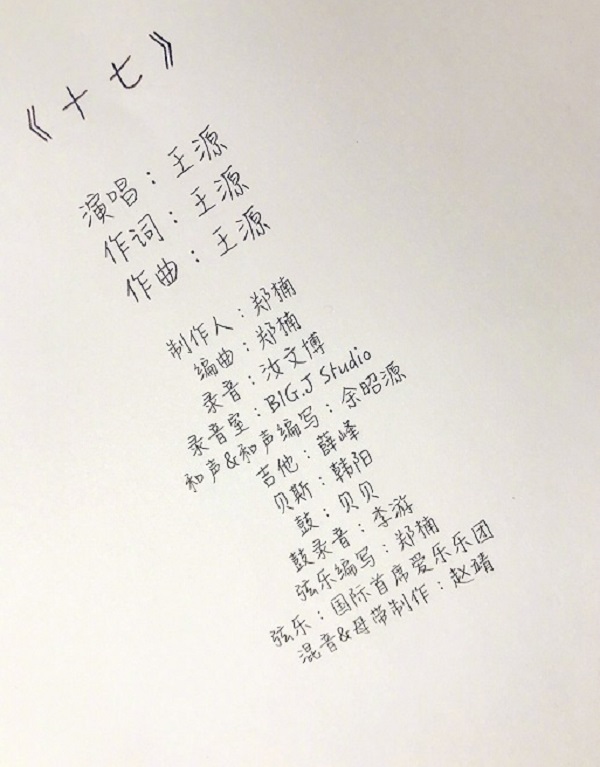 《十七》
演唱：王源
作词：王源
作曲：王源
制作人：郑楠
编曲：郑楠
录音：汝文博
录音室：BIG.J Studio
和声&和声编写：余昭源
吉他：薛峰
贝斯：韩阳
鼓：贝贝
鼓录音：李游
弦乐编写：郑楠
弦乐：国际首席爱乐乐团
混音&母带制作：赵靖